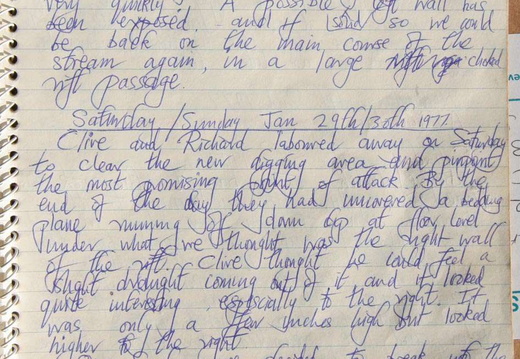 very quickly! A possible left wall has
been exposed. and if so we could
be back on the main course of the
stream again, in a large choked
rift passage.
Saturday/Sunday Jan 29th/30th 1977
Clive and Richard laboured away on Saturday
to clear the new digging area and pinpoint
the most promising point of attack. By the
end of the day they had uncovered a bedding
plane running off down dip at floor level
under what we thought was the right wall
of the rift. Clive thought he could feel a
slight draught coming out of it and it looked
quite interesting especially to the right. It
was only a few inches high but looked
higher to the right.